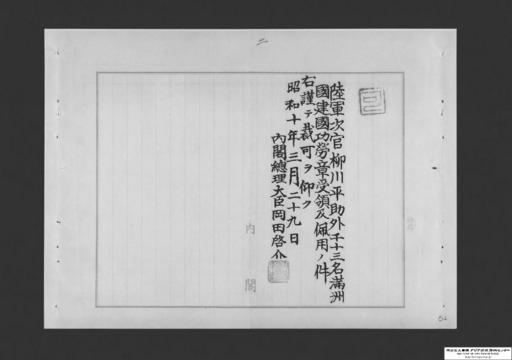 二
陸軍次官柳川平助外千十三名滿洲
國建國功勞章受領及佩用ノ件
右謹テ裁可ヲ仰ク
昭和十年三月二十九日
內閣總理大臣岡田啓介
內閣